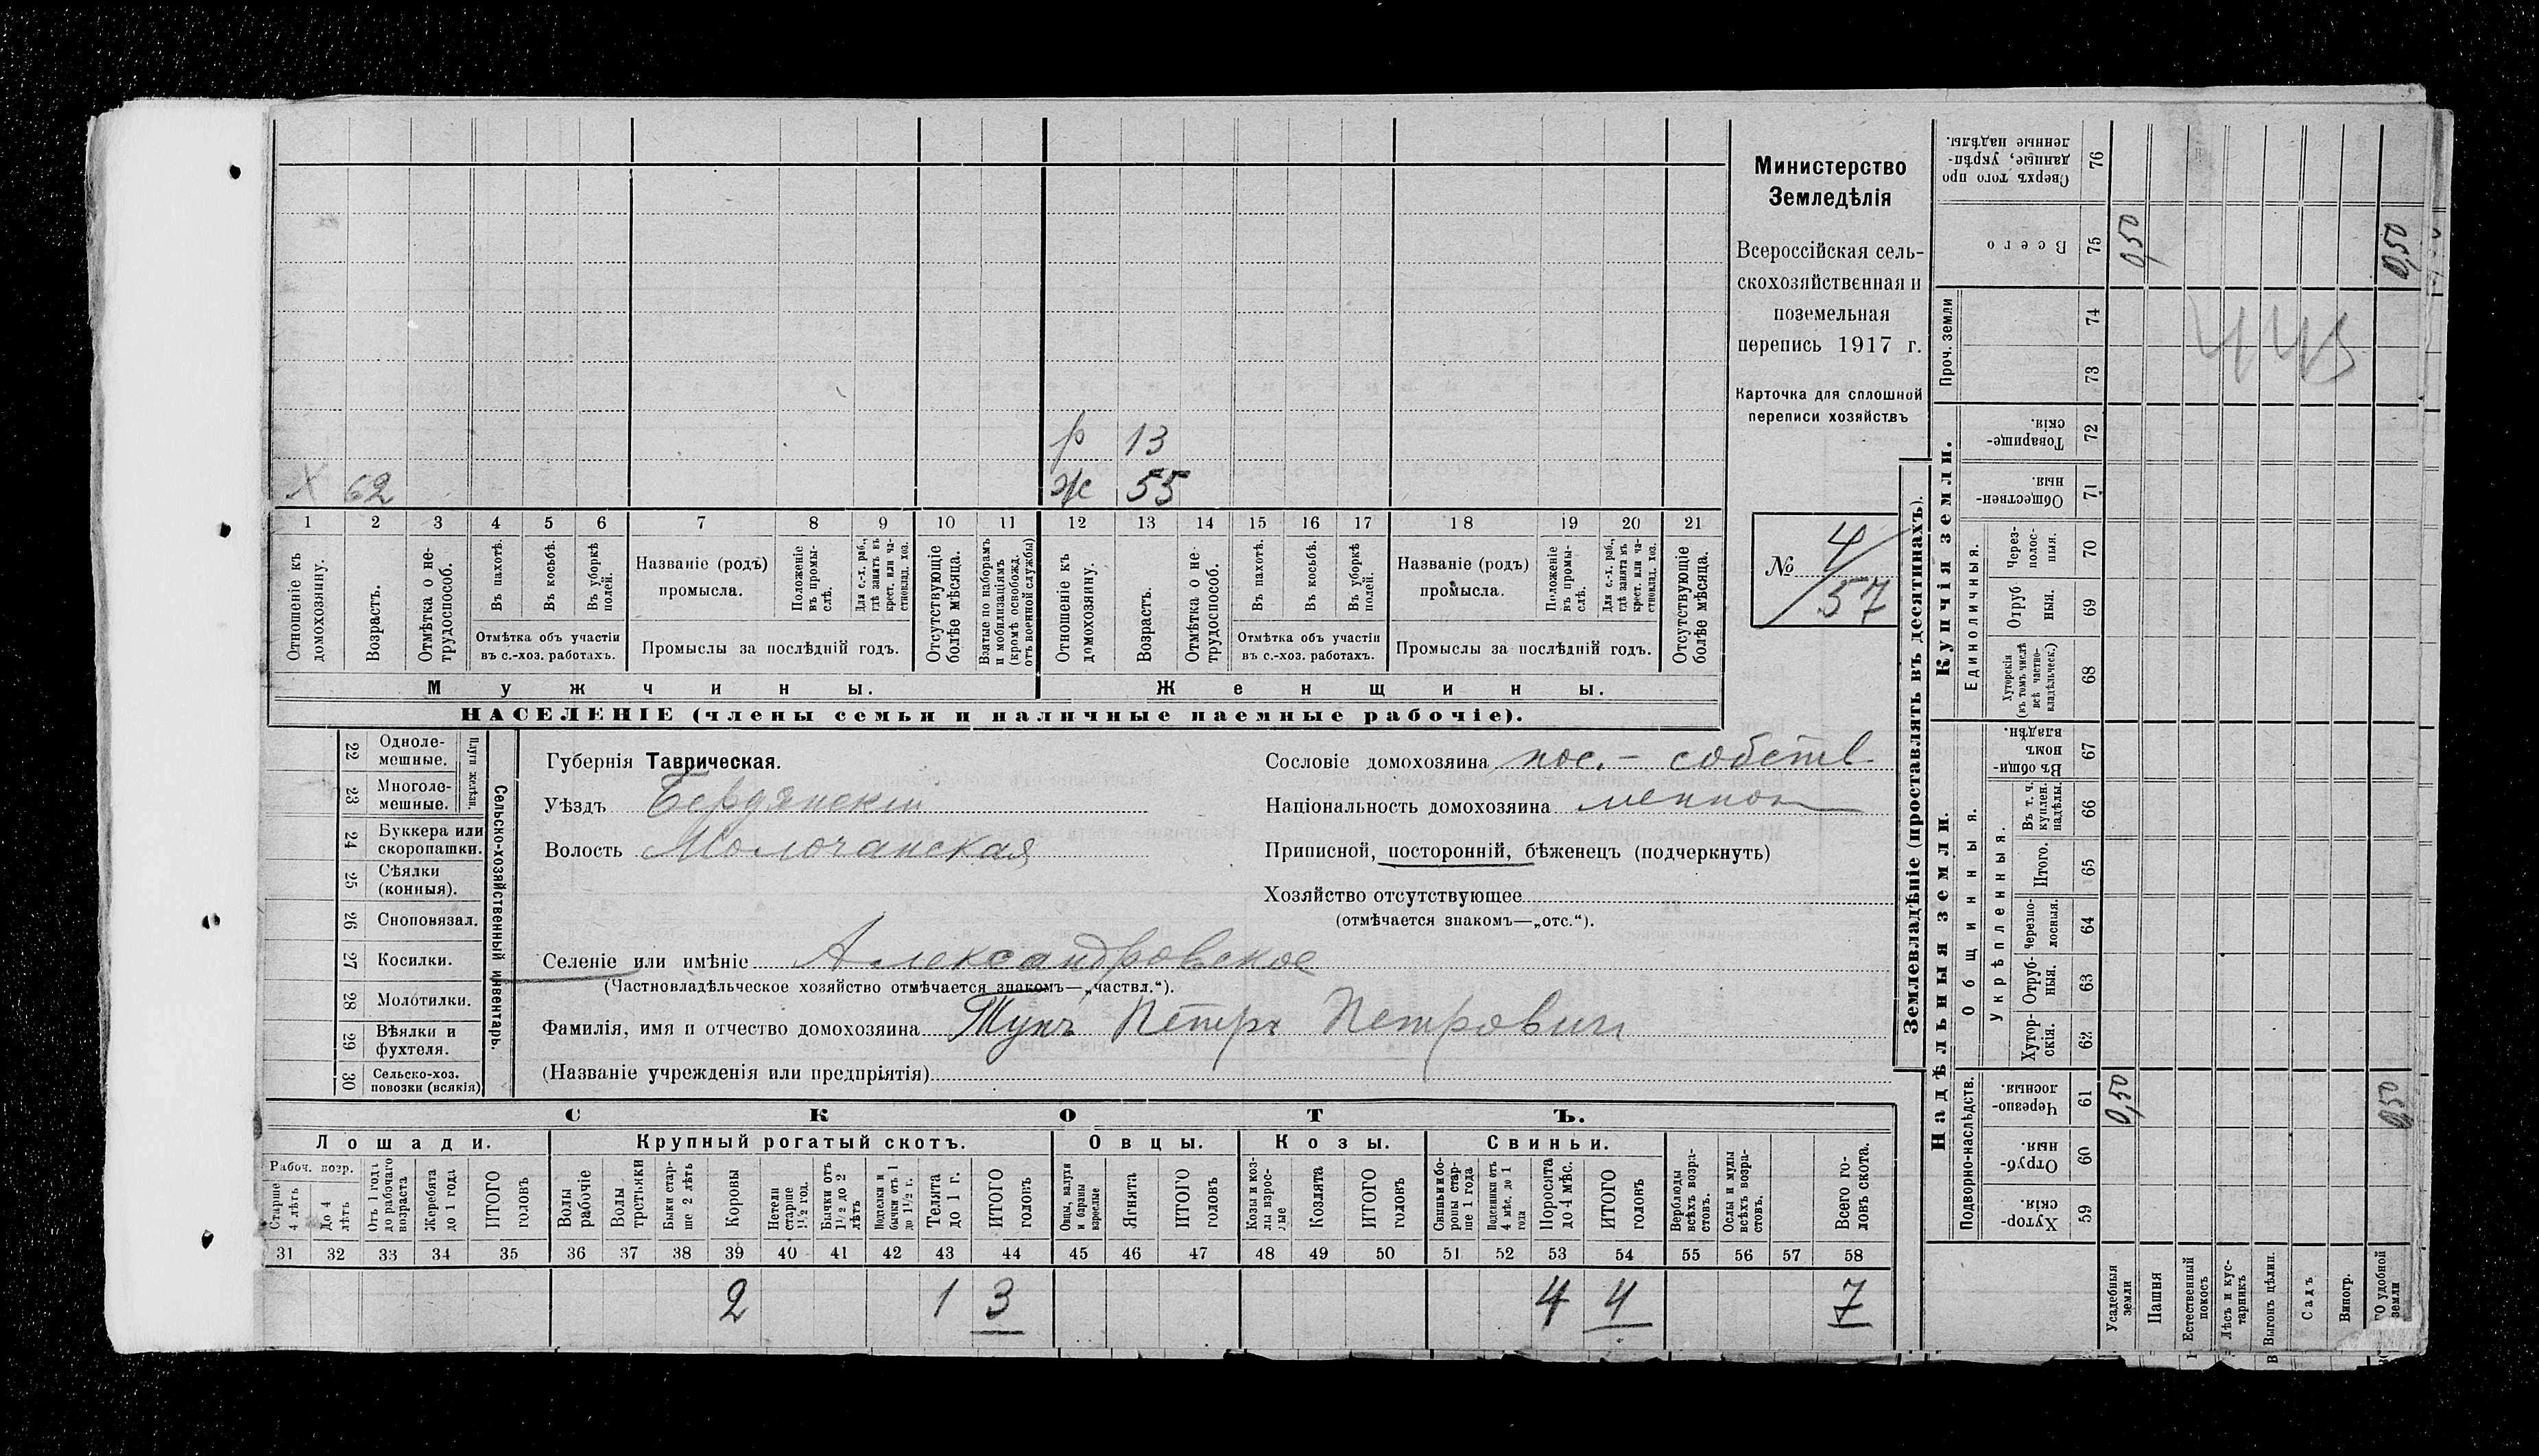 Министерство
Земледѣлія
Всероссійская сель-
скохозяйственная и
поземельная
перепись 1917 г.
Карточка для сплошной
переписи хозяйствъ
№ 4/57
р 13
Х 62
ж 55
1 2 3 4 5 6 7 8 9 10 11 12 13 14 15 16 17 18 19 20 21
Отношеніе къ домохозяину.
Возрастъ.
Отмѣтка о не-трудоспособ.
Въ пахотѣ.
Въ косьбѣ.
Въ уборкѣ полей.
Отмѣтка объ участіи
въ с.-хоз. работахъ.
Названіе (родъ)
промысла.
Положеніе въ промы-слѣ.
Для с.-х. раб., гдѣ занятъ въ крест. или ча-стновлад. хоз.
Промыслы за послѣдній годъ.
Отсутствующіе болѣе мѣсяца.
Взятые по наборамъ и мобилизаціямъ (кромѣ освобожд. отъ военной службы)
Отношеніе къ домохозяину.
Возрастъ.
Отмѣтка о не-трудоспособ.
Въ пахотѣ.
Въ косьбѣ.
Въ уборкѣ полей.
Отмѣтка объ участіи
въ с.-хоз. работахъ.
Названіе (родъ)
промысла.
Положеніе въ промы-слѣ.
Для с.-х. раб., гдѣ занята въ крест. или ча-стновлад. хоз.
Промыслы за послѣдній годъ.
Отсутствующіе болѣе мѣсяца.
Мужчины. Женщины.
НАСЕЛЕНІЕ (члены семьи и наличные наемные рабочіе).
Сельско-хозяйственный инвентарь.
Плуги желѣзн.
22 Одноле-мешные.
23 Многоле-мешные.
24 Буккера или скоропашки.
25 Сѣялки (конныя).
26 Сноповязал.
27 Косилки.
28 Молотилки.
29 Вѣялки и фухтеля.
30 Сельско-хоз. повозки (всякія)
Губернія Таврическая.
Уѣздъ Бердянскій
Волость Молочанская
Селеніе или имѣніе Александровское
(Частновладѣльческое хозяйство отмѣчается знакомъ—„частвл.“).
Фамилія, имя и отчество домохозяина Тунъ Петръ Петрович
(Названіе учрежденія или предпріятія)
Сословіе домохозяина пос. - собств
Національность домохозяина меннон
Приписной, посторонній, бѣженецъ (подчеркнуть)
Хозяйство отсутствующее
(отмѣчается знакомъ—„отс.“).
СКОТЪ.
Лошади. Крупный рогатый скотъ. Овцы. Козы. Свиньи.
Рабоч. возр.
Старше 4 лѣтъ
До 4 лѣтъ
Отъ 1 года до рабочаго возраста
Жеребята до 1 года
ИТОГО головъ
Волы рабочіе
Волы третьяки
Быки стар-ше 2 лѣтъ
Коровы
Нетели старше 1 1/2 год.
Бычки отъ 1 1/2 до 2 лѣтъ
Подтелки и бычки отъ 1 до 1 1/2 г.
Телята до 1 г.
ИТОГО головъ
Овцы, валухи и бараны взрослые
Ягнята
ИТОГО головъ
Козы и коз-лы взрос-лые
Козлята
ИТОГО головъ
Свиньи и бо-ровы стар-ше 1 года
Подсвинки отъ 4 мѣс. до 1 года
Поросята до 4 мѣс.
ИТОГО головъ
Верблюды всѣхъ возра-стовъ.
Ослы и мулы всѣхъ возра-стовъ.
Всего го-ловъ скота.
31 32 33 34 35 36 37 38 39 40 41 42 43 44 45 46 47 48 49 50 51 52 53 54 55 56 57 58
2 1 3 4 4 7
Землевладѣніе (проставлять въ десятинахъ).
Надѣльныя земли. Купчія земли. Проч. земли
Подворно-наслѣдств.
Общинныя.
Укрѣпленныя.
Единоличныя.
Сверхъ того про
данные, укрѣп-
ленные надѣлы.
76
Всего 75 0,50 0,50
74
73
443
Товарище-скія. 72
Обществен-ныя. 71
Через-полос-ныя. 70
Отруб ныя. 69
Хуторскія (въ томъ числѣ всѣ частно-владѣльческ.) 68
Въ общи-номъ владѣн. 67
Въ т. ч. куплен. надѣлы. 66
Итого. 65
Черезпо-лосныя. 64
Отруб-ныя. 63
Хутор-скія. 62
Черезпо-лосныя. 61 0,50 0,50
Отруб-ныя. 60
Хутор-скія. 59
Усадебныя земли
Пашня
Естественный покосъ
Лѣсъ и кус-тарникъ
Выгонъ цѣлин.
Садъ
Виногр.
удобной земли